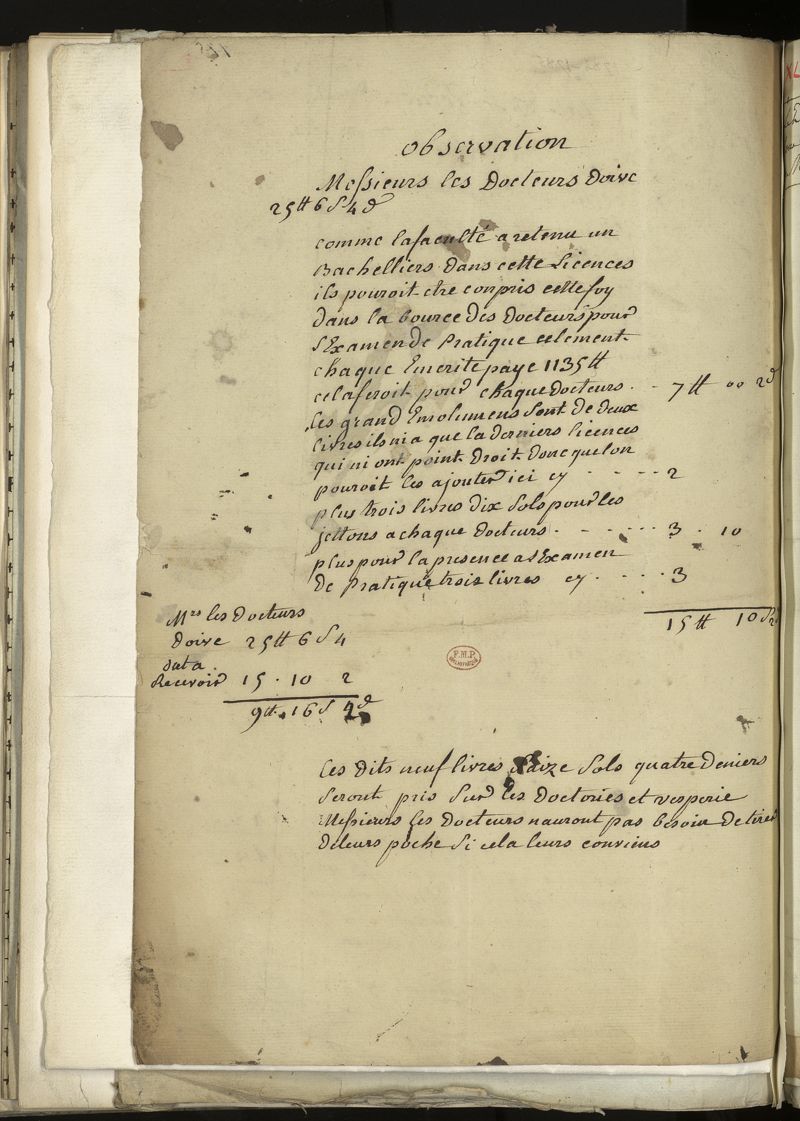 observation
Messieurs les Docteurs doive
25# 6 s 4 d
comme lafaculté a retenu un
Bachelliers dans cette Licences
ils pouroit etre conpris cettefoy
dans la bource des Docteurs pour
l'Examen de Pratique celement
chaque Emerite paye 1135#
celaferoit pour chaque Docteurs . . 7# 00 2d
Les grand Emolumens sont de deux
livres ils ni a que la derniers licences
qui ni ont point droit donc que lon
pouroit les ajouter ici cy . . . . 2
plus trois livres dix sols pour les
jettons a chaque Docteurs . . . . . 3 . 10
plus pour la presence a l'Examen
de Pratique trois livres cy . . . . 3
15# 10 s 2
Mrs les Docteurs
doive 25# 6 s 4
Recevoir 15 . 10 2
9# . 16 s 2d
F.M.P.
Ces dits neuf livres saize sols quatre deniers
seront pris sur les Doctories et vesperie
Messieurs les Docteurs nauront pas besoin de tirer
de leurs poche si cela leurs conviens